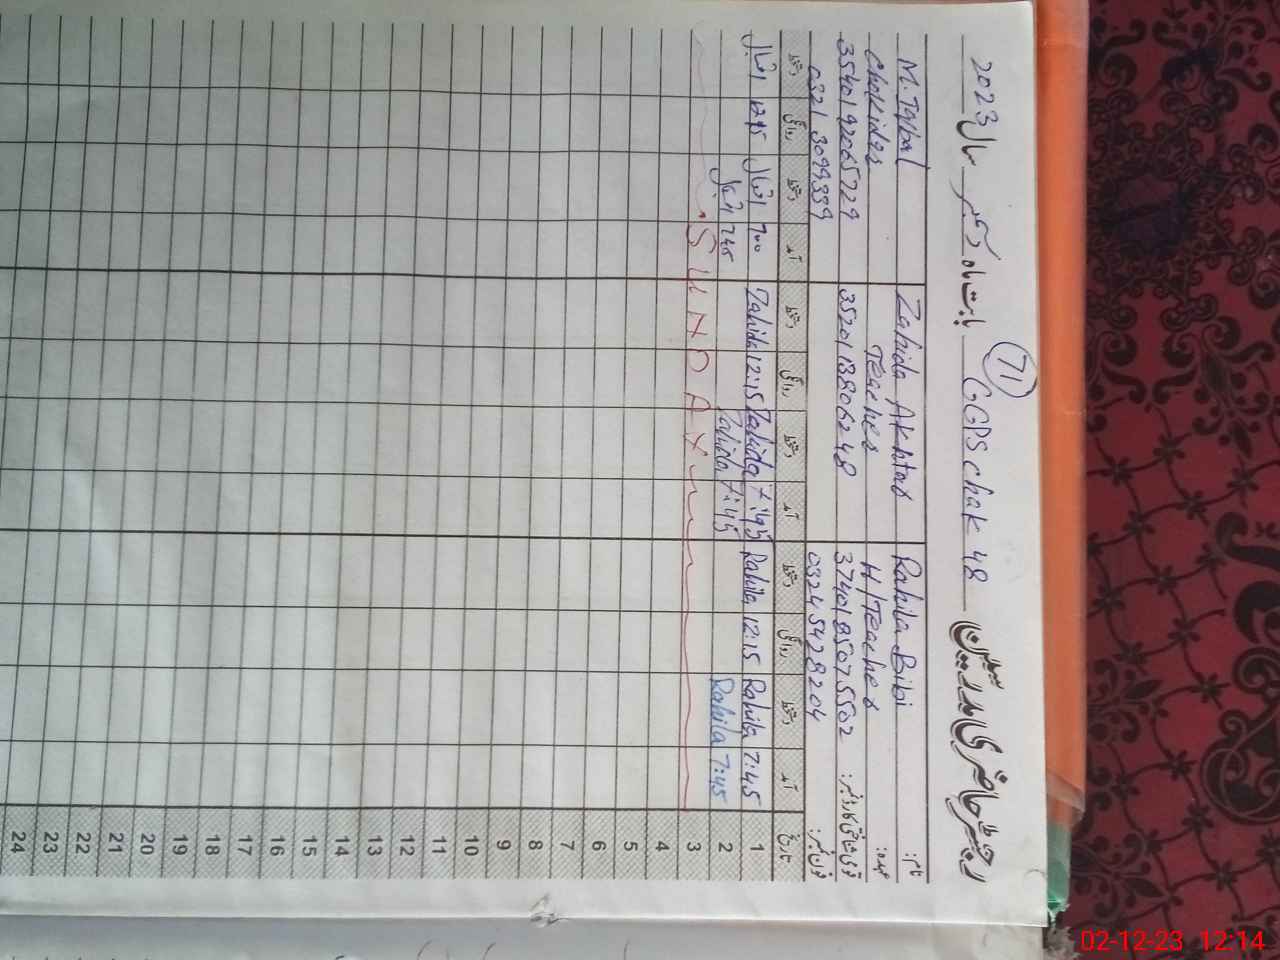 71
رجسٹر حاضری مدرسین GGPS chak 48 بابت ماہ دسمبر سال 2023
نام: Rahila Bibi Zahida Akhtar M. Iqbal
عہدہ: H/Teacher Teacher Chokidar
قومی شناختی کارڈ نمبر: 3740185075502 3520113806248 3540192065729
فون نمبر: 03245428204 0321 3099339
تاریخ آمد دستخط روانگی دستخط آمد دستخط روانگی دستخط آمد دستخط روانگی دستخط
1 7:45 Rahila 12:15 Rahila 7:45 Zahida 12:15 Zahida 7:00 اقبال 12:15 اقبال
2 7:45 Rahila 7:45 Zahida 7:45 اقبال
3 SUNDAY
4
5
6
7
8
9
10
11
12
13
14
15
16
17
18
19
20
21
22
23
24
02-12-23 12:14